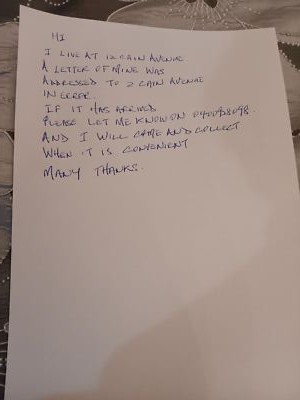 HI
I LIVE AT 12 CAIN AVENUE
A LETTER OF MINE WAS
ADDRESSED TO 2 CAIN AVENUE
IN ERROR.
IF IT HAS ARRIVED
PLEASE LET ME KNOW ON
AND I WILL COME AND COLLECT
WHEN IT IS CONVENIENT
MANY THANKS.